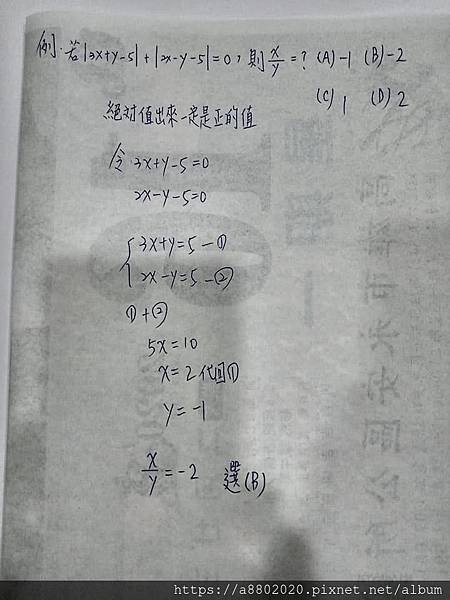 例. 若|3x+y-5|+|2x-y-5|=0, 則 x/y=? (A)-1 (B)-2
(C) 1 (D) 2
絕對值出來一定是正的值
令 3x+y-5=0
2x-y-5=0
{3x+y=5-①
2x-y=5-②
①+②
5x=10
x=2代回①
y=-1
x/y=-2 選(B)
https://a8802020.pixnet.net/album